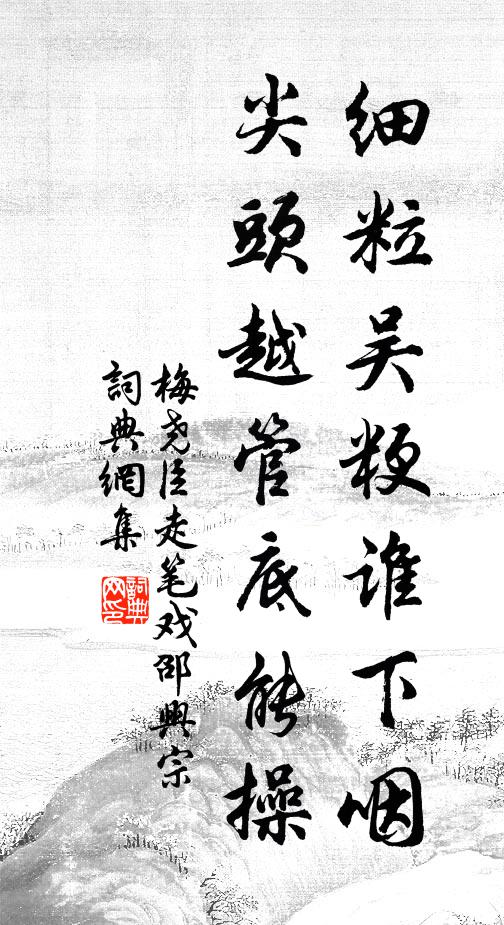 细粒吴粳谁下咽
尖頭越管底能操
梅尧臣走笔戏邵興宗
詞典網集
詞典網印